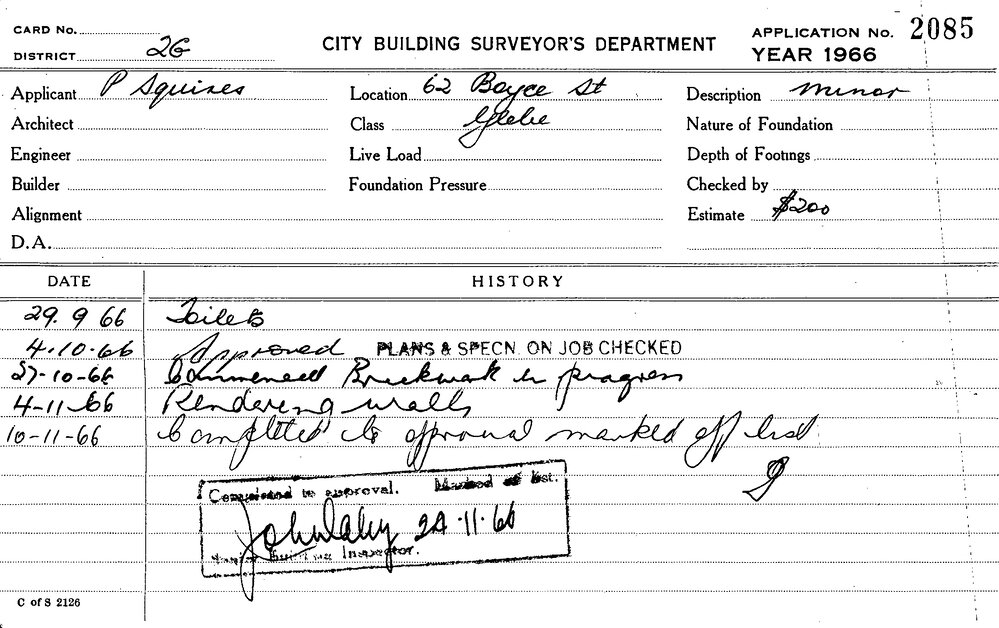 CARD No.
DISTRICT 2G
CITY BUILDING SURVEYOR'S DEPARTMENT
APPLICATION No. 2085
YEAR 1966
Applicant P Squires
Location 62 Boyce St
Description minor
Architect
Class Glebe
Nature of Foundation
Engineer
Live Load
Depth of Footings
Builder
Foundation Pressure
Checked by
Alignment
Estimate $200
D.A.
DATE HISTORY
29.9 66 Toilets
4.10.66 Approved PLANS & SPECN. ON JOB CHECKED
27-10-66 Commenced Brickwork in progress
4-11-66 Rendering walls
10-11-66 Completed to approval marked off list
Completed to approval. Marked off list.
John Daly 24.11.66
Building Inspector.
C of S 2126